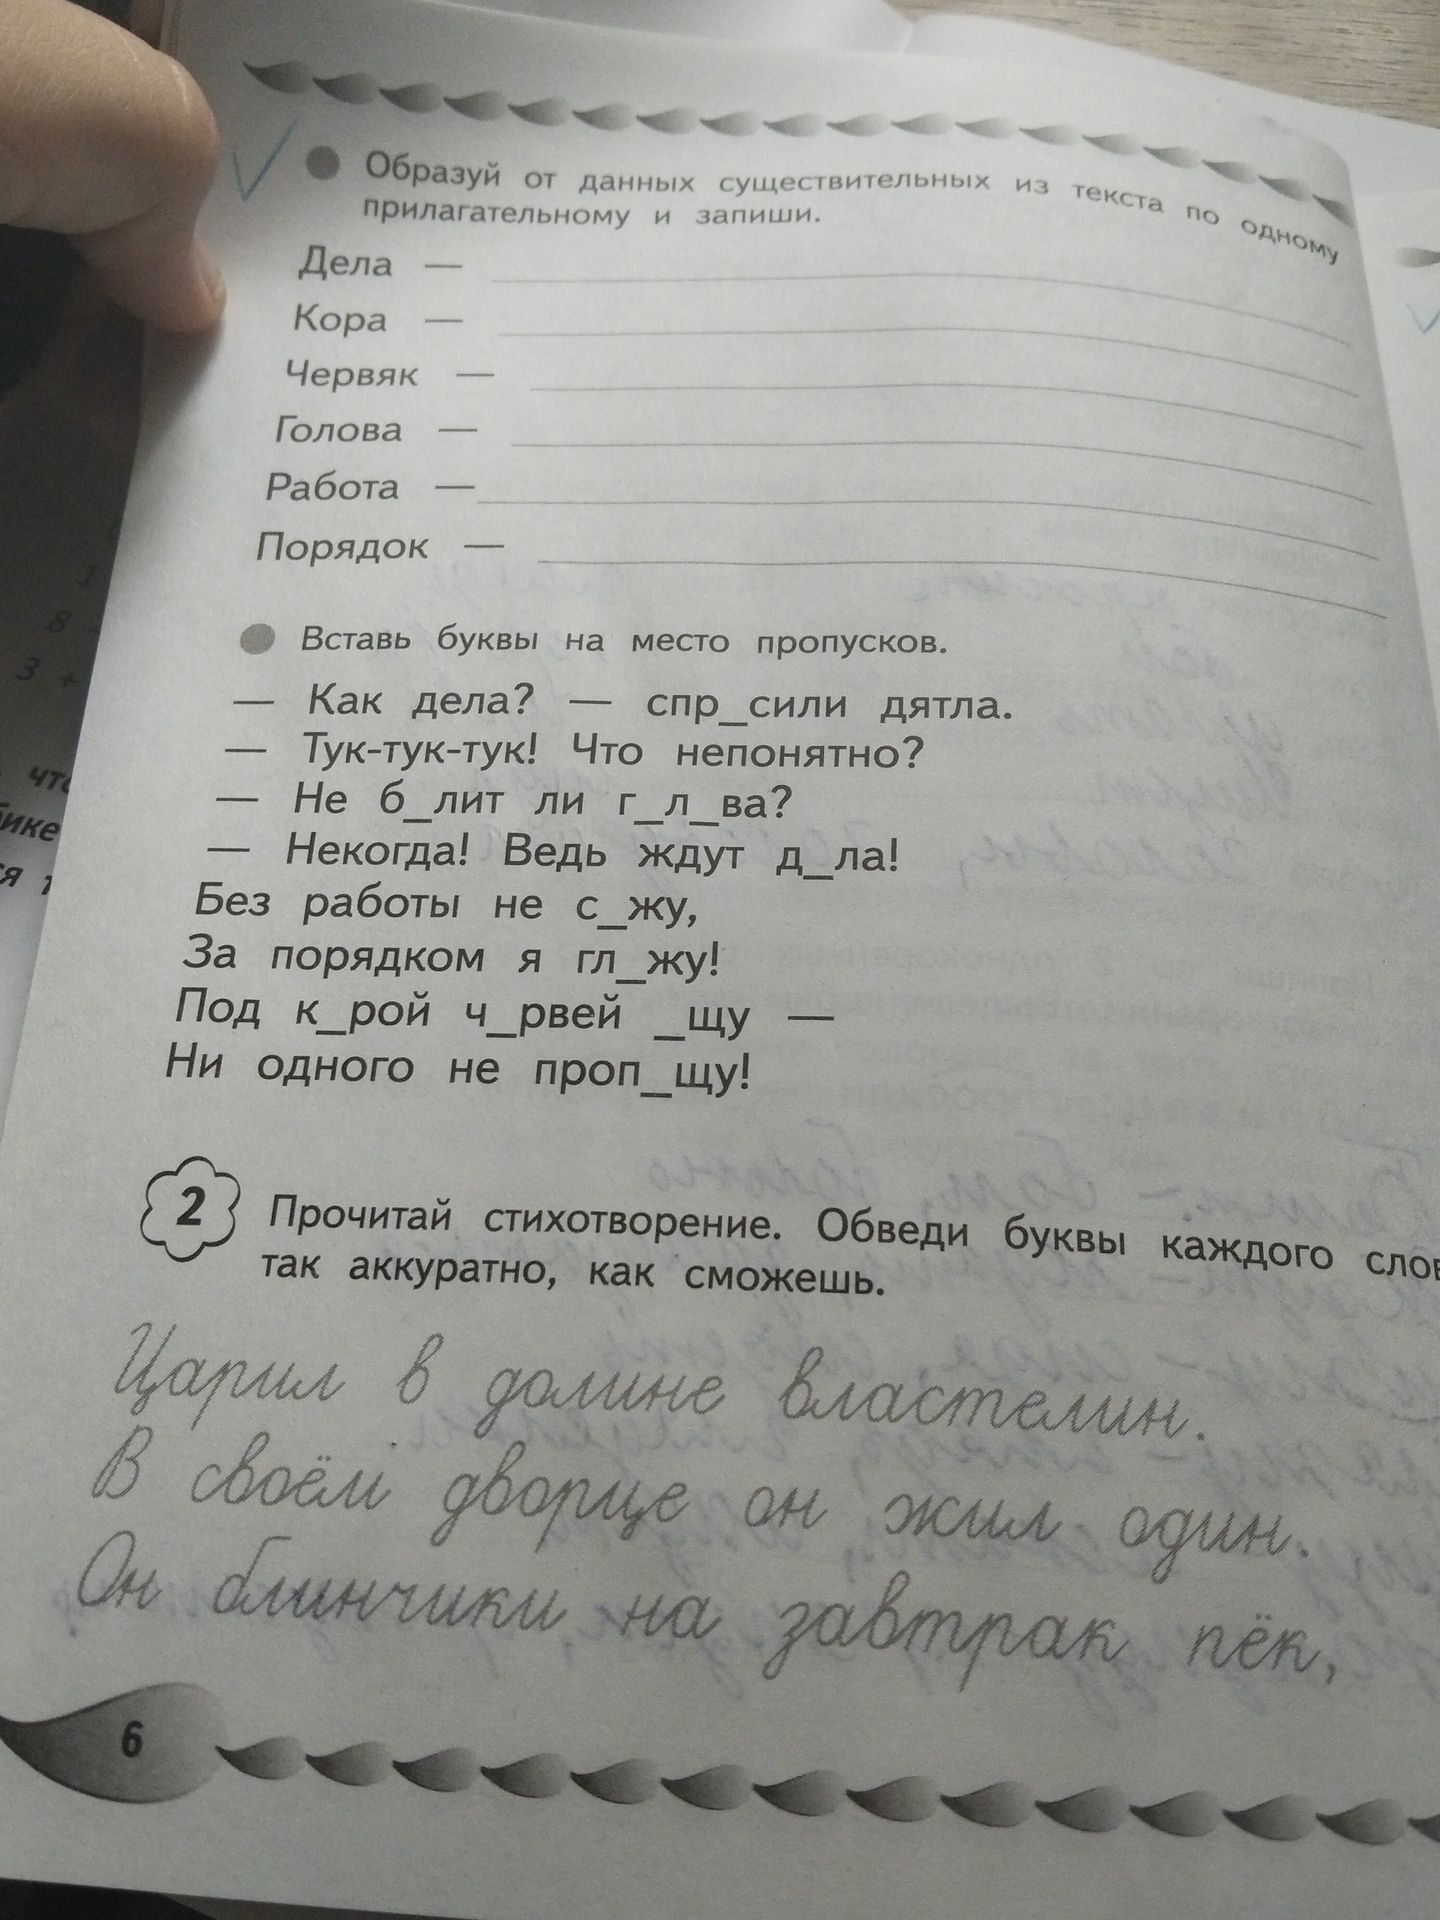 Образуй от данных существительных из текста по одному
прилагательному и запиши.
Дела —
Кора —
Червяк —
Голова —
Работа —
Порядок —
Вставь буквы на место пропусков.
— Как дела? — спр_сили дятла.
— Тук-тук-тук! Что непонятно?
— Не б_лит ли г_л_ва?
— Некогда! Ведь ждут д_ла!
Без работы не с_жу,
За порядком я гл_жу!
Под к_рой ч_рвей _щу —
Ни одного не проп_щу!
2 Прочитай стихотворение. Обведи буквы каждого
так аккуратно, как сможешь.
Царил в долине властелин.
В своём дворце он жил один.
Он блинчики на завтрак пёк,
6